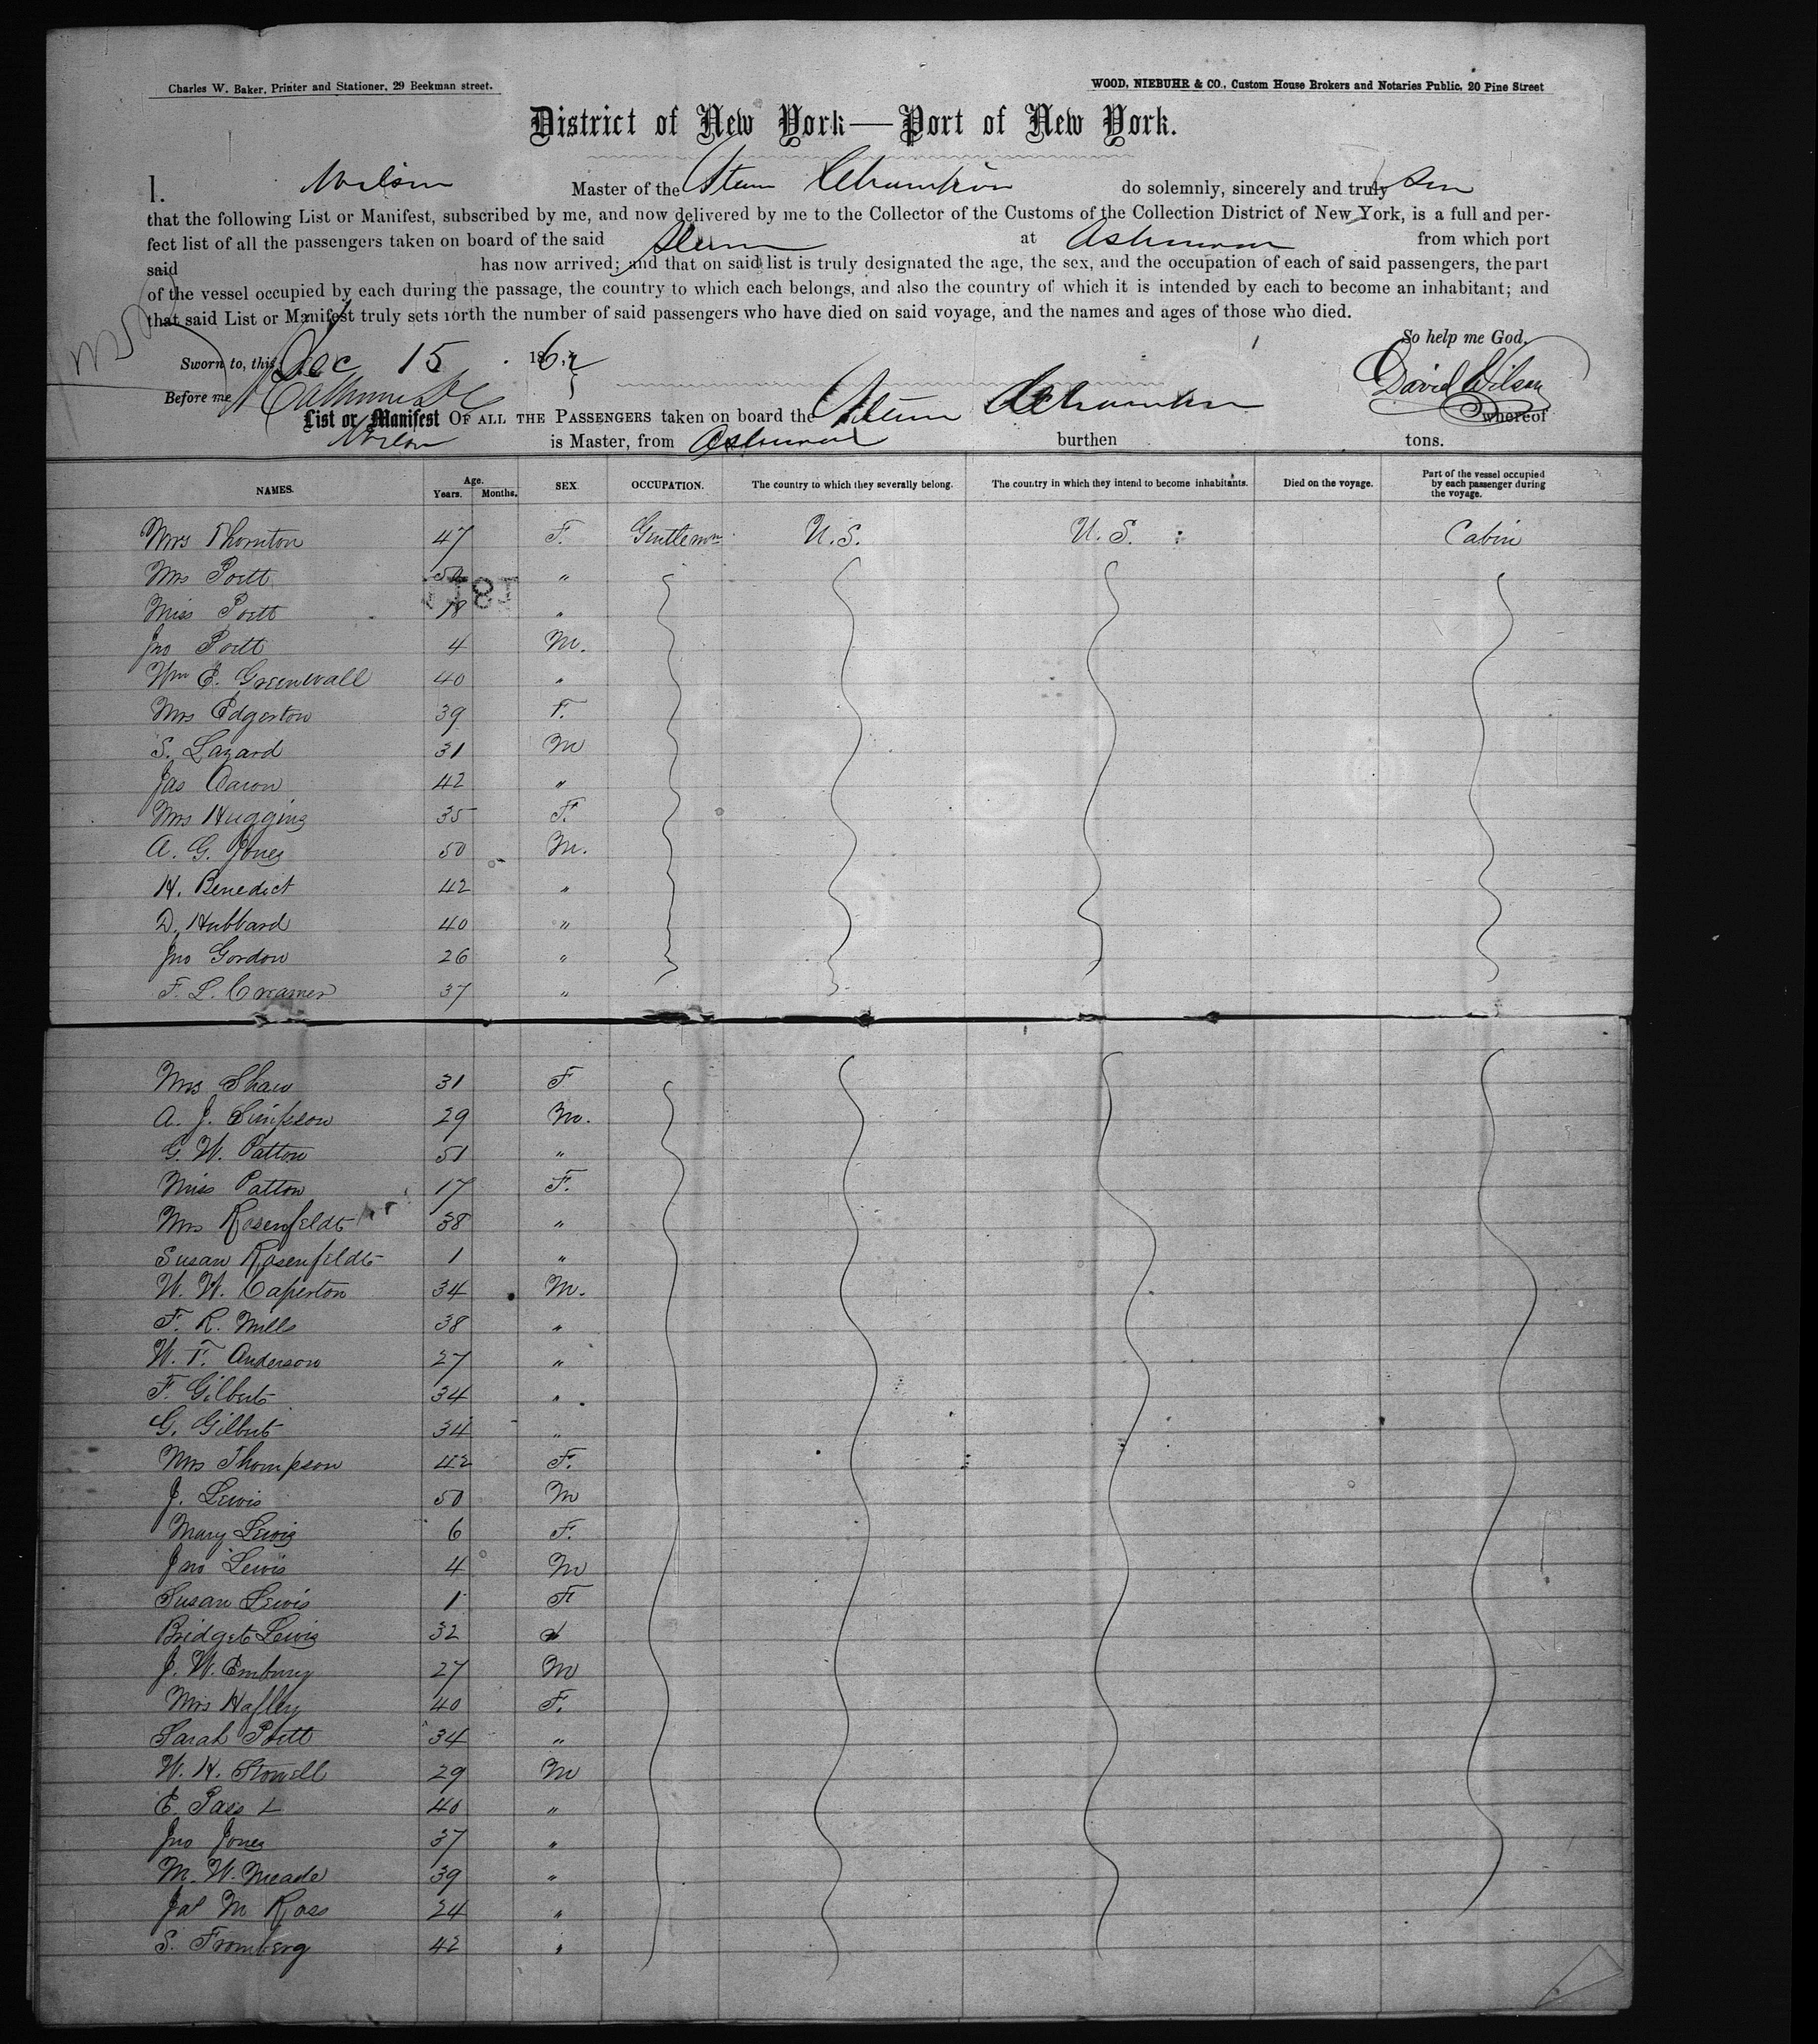 Charles W. Baker, Printer and Stationer, 29 Beekman street.
WOOD, NIEBUHR & CO., Custom House Brokers and Notaries Public, 20 Pine Street
District of New York—Port of New York.
I. Wilson Master of the Steam Champion do solemnly, sincerely and truly
that the following List or Manifest, subscribed by me, and now delivered by me to the Collector of the Customs of the Collection District of New York, is a full and per-
fect list of all the passengers taken on board of the said Steam at Aspinwall from which port
said has now arrived; and that on said list is truly designated the age, the sex, and the occupation of each of said passengers, the part
of the vessel occupied by each during the passage, the country to which each belongs, and also the country of which it is intended by each to become an inhabitant; and
that said List or Manifest truly sets forth the number of said passengers who have died on said voyage, and the names and ages of those who died.
So help me God.
Sworn to, this Dec 15 186
David Wilson
Before me
List or Manifest OF ALL THE PASSENGERS taken on board the Steam Champion whereof
Wilson is Master, from Aspinwall burthen tons.
NAMES. Age. Years. Months. SEX. OCCUPATION. The country to which they severally belong. The country in which they intend to become inhabitants. Died on the voyage. Part of the vessel occupied by each passenger during the voyage.
Mrs Thornton 47 F. Gentlemn U.S. U.S. Cabin
Mrs Poett "
Miss Poett 18 "
Jno Poett 4 M.
Wm E. Greenwall 40 "
Mrs Edgerton 39 F.
S. Lazard 31 M
Jas Aaron 42 "
Mrs Huggins 35 F.
A. G. Jones 50 M.
H. Benedict 42 "
D. Hubbard 40 "
Jno Gordon 26 "
F. L. Creamer 37 "
Mrs Shaw 31 F
A. J. Simpson 29 M.
G. W. Patton 51 "
Miss Patton 17 F.
Mrs Rosenfeldt 38 "
Susan Rosenfeldt 1 "
W. W. Caperton 34 M.
F. R. Mills 38 "
W. F. Anderson 27 "
F. Gilbert 34 "
G. Gilbert 34 "
Mrs Thompson 42 F.
J. Lewis 50 M
Mary Lewis 6 F.
Jno Lewis 4 M
Susan Lewis 1 F
Bridget Lewis 32
J. W. Embury 27 M
Mrs Hafley 40 F.
Sarah Poett 34 "
W. H. Stowell 29 M
E. Pass 40 "
Jno Jones 37 "
M. W. Meade 39 "
Jas M Ross 24 "
S. Fromberg 42 "